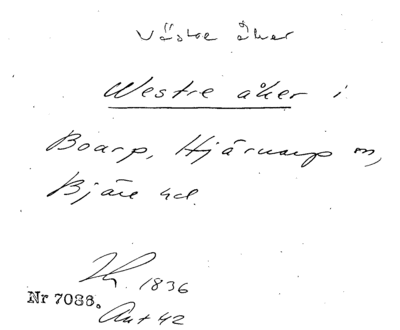 Västre åker
Westre åker i
Boarp, Hjärnarp sn,
Bjäre hd.
1836
Nr 7036.
Akt 42